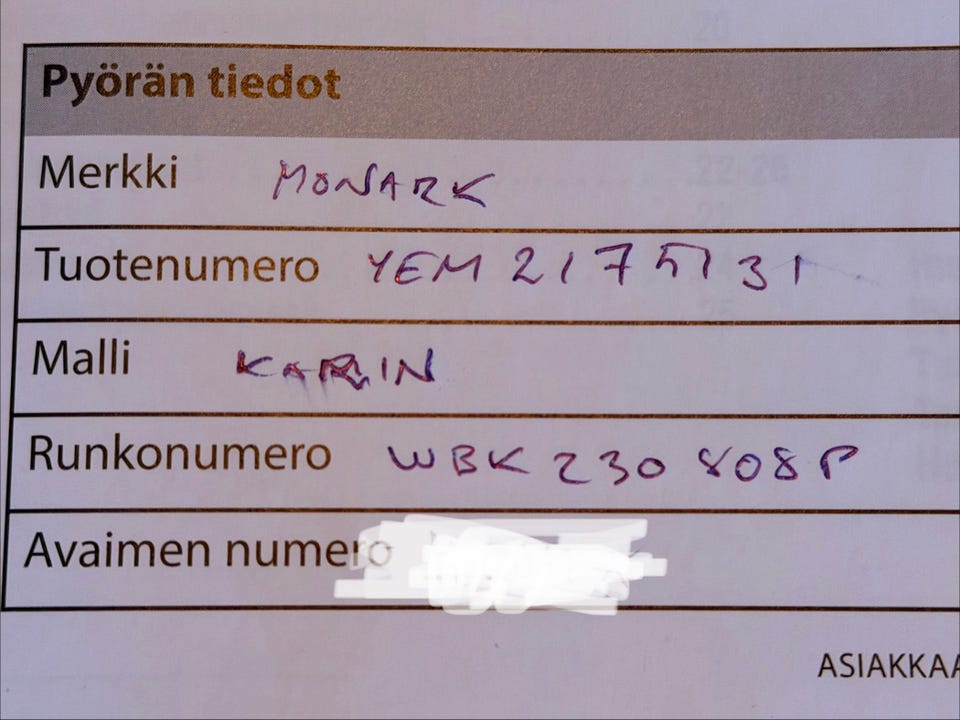 Pyörän tiedot
Merkki MONARK
Tuotenumero YEM 2175131
Malli KARIN
Runkonumero WBK230808P
Avaimen numero